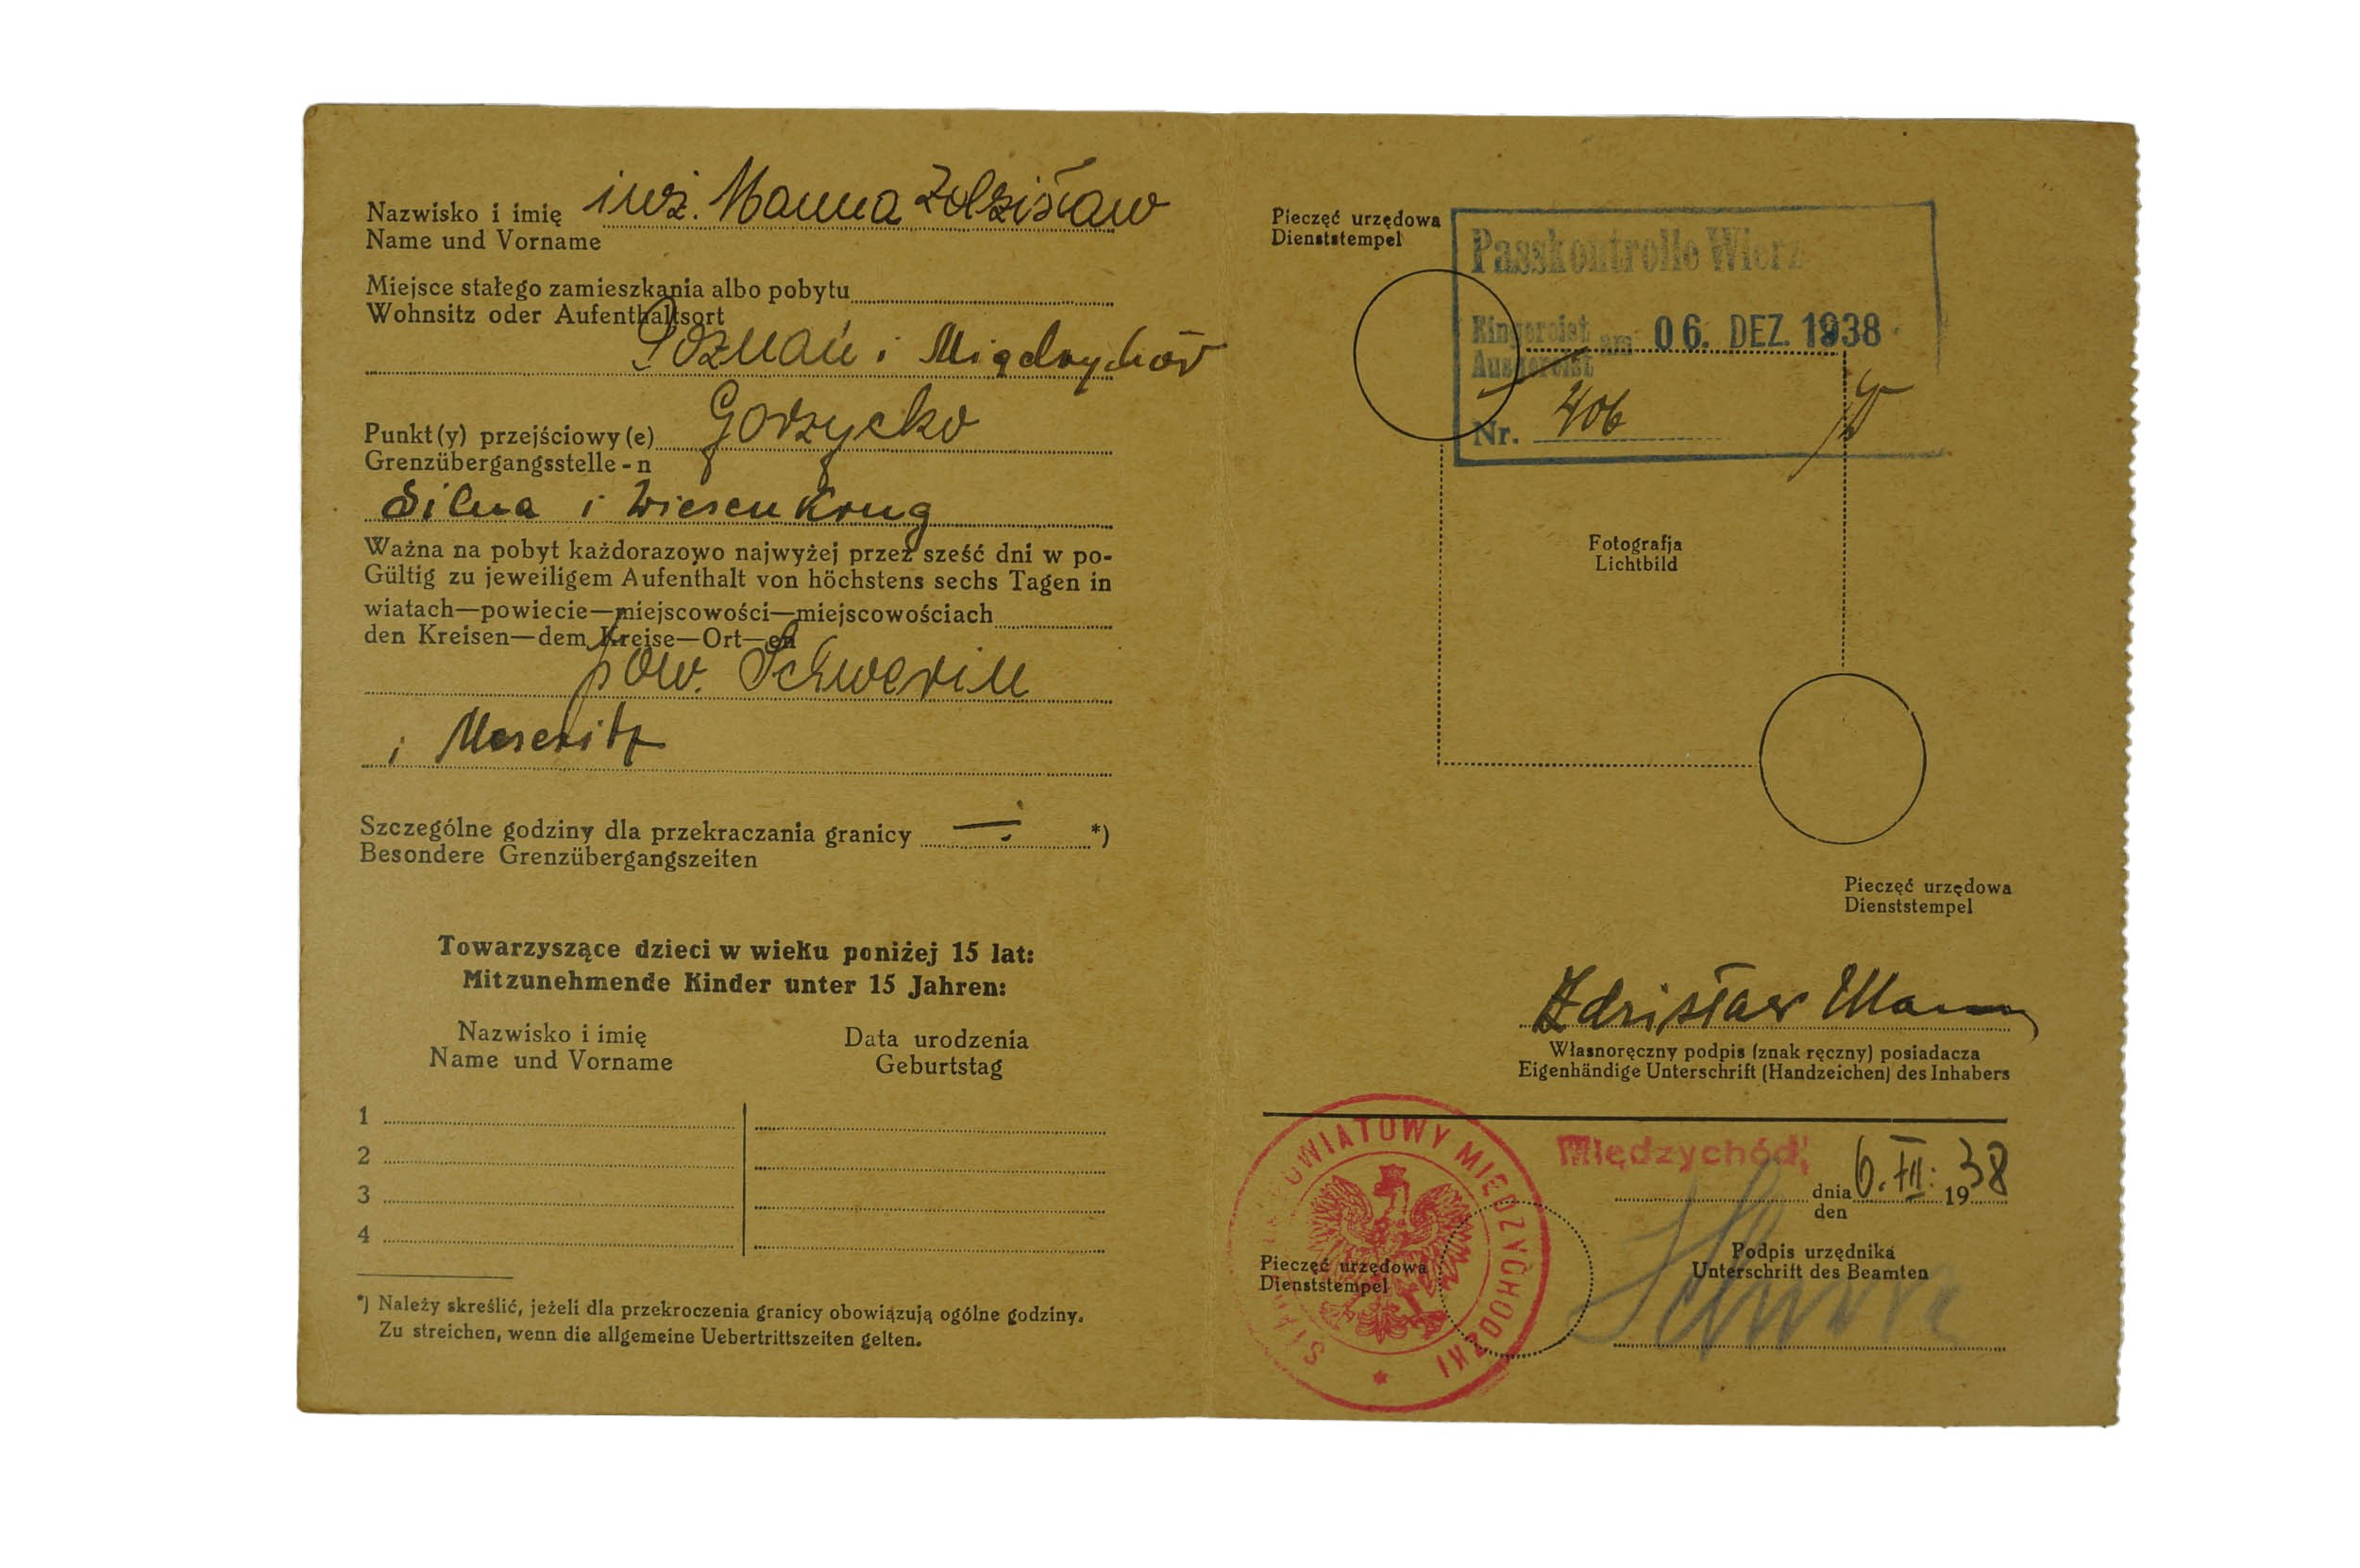 Nazwisko i imię inż. Manna Zdzisław
Name und Vorname
Miejsce stałego zamieszkania albo pobytu
Wohnsitz oder Aufenthaltsort
Poznań i Międzychód
Punkt(y) przejściowy(e) Gorzycko
Grenzübergangsstelle-n
Silna i Wiesenkrug
Ważna na pobyt każdorazowo najwyżej przez sześć dni w po-
Gültig zu jeweiligem Aufenthalt von höchstens sechs Tagen in
wiatach—powiecie—miejscowości—miejscowościach
den Kreisen—dem Kreise—Ort—en
pow. Schwerin
i Meseritz
Szczególne godziny dla przekraczania granicy —:— *)
Besondere Grenzübergangszeiten
Towarzyszące dzieci w wieku poniżej 15 lat:
Mitzunehmende Kinder unter 15 Jahren:
Nazwisko i imię Data urodzenia
Name und Vorname Geburtstag
1
2
3
4
*) Należy skreślić, jeżeli dla przekroczenia granicy obowiązują ogólne godziny.
Zu streichen, wenn die allgemeine Uebertrittszeiten gelten.
Pieczęć urzędowa
Dienststempel
Passkontrolle Wierz
Eingereist am 06. DEZ. 1938
Ausgereist
Nr. 406
Fotografja
Lichtbild
Pieczęć urzędowa
Dienststempel
Zdzisław Manna
Własnoręczny podpis (znak ręczny) posiadacza
Eigenhändige Unterschrift (Handzeichen) des Inhabers
STAROSTA POWIATOWY MIĘDZYCHODZKI
Międzychód,
dnia 6. XII. 1938
den
Pieczęć urzędowa
Dienststempel
Podpis urzędnika
Unterschrift des Beamten